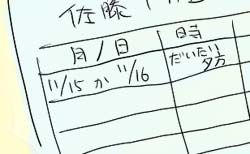 佐藤
月/日 時
11/15 か 11/16 だいたい夕方